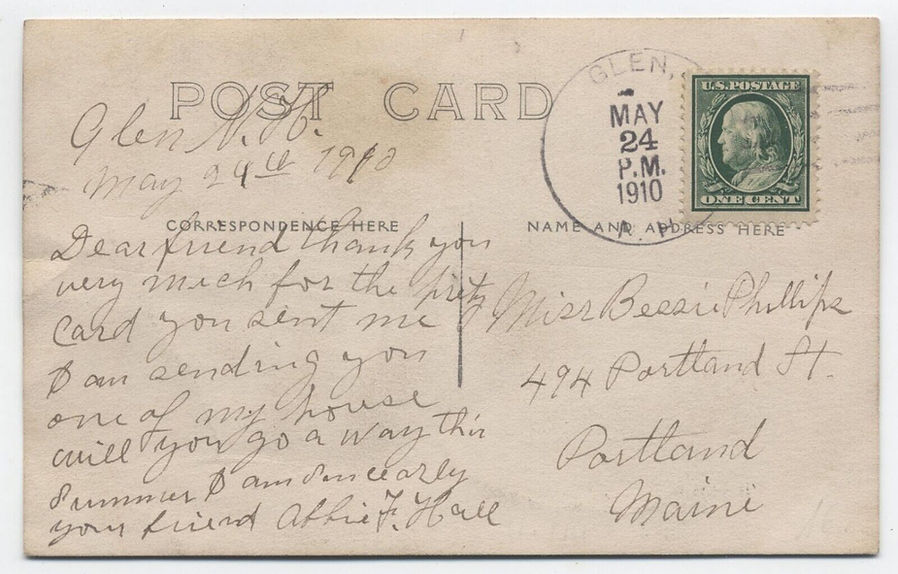 POST CARD
Glen N. H.
May 24th 1910
CORRESPONDENCE HERE
Dear friend thank you
very much for the prety
Card you sent me
I am sending you
one of my house
will you go a way this
Summer I am Sincearly
your friend Abbie F. Hall
GLEN,
MAY
24
P.M.
1910
N.H.
U.S. POSTAGE
ONE CENT
NAME AND ADDRESS HERE
Miss Bessie Phillips
494 Portland St.
Portland
Maine